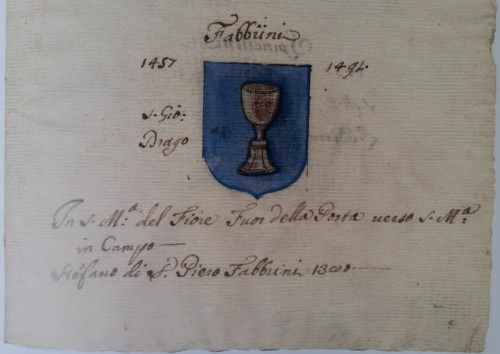 Fabbrini
1457
1491.
S. Gio:
Drago
In S. M.ª del Fiore Fuor della Porta verso S. M.ª
in Campo —
Stefano di S. Piero Fabbrini 1300 —